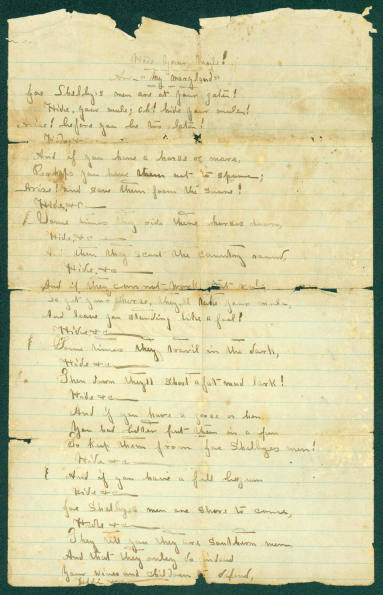 Hide Your Mule!
Air - "My Maryland"
Joe Shelby's men are at your gate!
Hide, your mule; oh! hide your mule!
Arise! before you be too late!
Hide, &c
And if you have a horse or mare,
Perhaps you have them not to spare;
Arise! and save them from the snare!
Hide, &c
Some times they ride there horses down,
Hide, &c
then they scout the country around,
Hide, &c
And if they can not
they'll take your mule,
And leave you standing like a fool!
Hide &c
Some times they travil in the dark,
Hide &c
Then down they'll shoot a fat mud lark!
Hide &c
And if you have a goose or hen
You had better put them in a pen
To keep them from Joe Shelbyes men!
Hide &c
And if you have a full
Hide &c
Joe Shelbyes men are shore to come,
Hide &c
They tell you they are southern men
And that they only to intend
Your wives and children to defend,